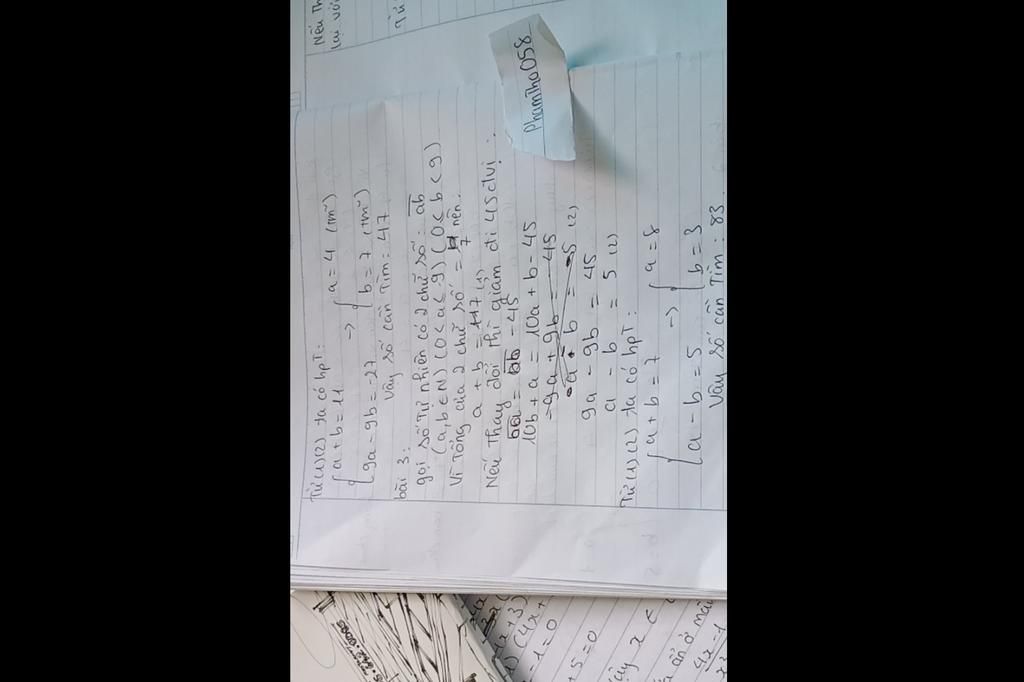 Nếu Th
lại với
Từ (
Từ (1)(2) ta có hpT:
{ a + b = 11
{ 9a - 9b = -27
-> { a = 4 (tm²)
{ b = 7 (tm²)
Vậy số cần Tìm: 47
bài 3:
gọi số Tự nhiên có 2 chữ số: ab
(a,b ∈ N) (0 < a < 9) (0 < b < 9)
Vì Tổng của 2 chữ số = 7 nên:
a + b = 7 (1)
Nếu Thay đổi Thì giảm đi 45 đvị:
ba = ab - 45
10b + a = 10a + b - 45
-9a + 9b = -45
a - b = 5 (2)
9a - 9b = 45
a - b = 5 (2)
Từ (1)(2) ta có hpT:
{ a + b = 7
{ a - b = 5
-> { a = 8
{ b = 3
Vậy số cần Tìm: 83
PhamTha058
4x+3)
) (4x+
-1=0
+5=0
x ∈
ẩn ở mẫ
4x-1